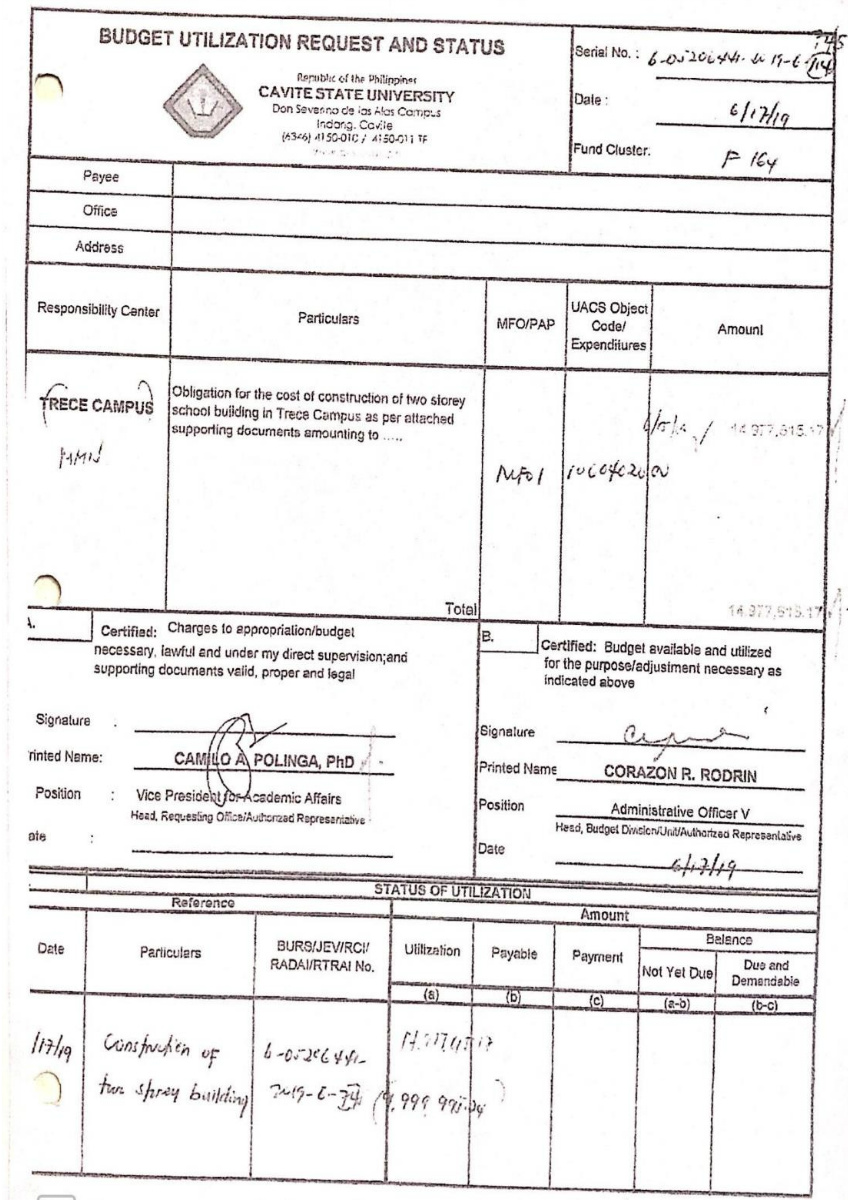 BUDGET UTILIZATION REQUEST AND STATUS
Republic of the Philippines
CAVITE STATE UNIVERSITY
Don Severino de las Alas Campus
Indang, Cavite
Serial No. :
Date : 6/17/19
Fund Cluster: F 164
Payee
Office
Address
Responsibility Center Particulars MFO/PAP UACS Object Code/ Expenditures Amount
TRECE CAMPUS
Obligation for the cost of construction of two storey
school building in Trece Campus as per attached
supporting documents amounting to .....
MFO1
Total
A. Certified: Charges to appropriation/budget
necessary, lawful and under my direct supervision;and
supporting documents valid, proper and legal
Signature :
Printed Name: CAMILO A. POLINGA, PhD
Position : Vice President for Academic Affairs
Head, Requesting Office/Authorized Representative
Date :
B. Certified: Budget available and utilized
for the purpose/adjustment necessary as
indicated above
Signature
Printed Name CORAZON R. RODRIN
Position Administrative Officer V
Head, Budget Division/Unit/Authorized Representative
Date 6/17/19
STATUS OF UTILIZATION
Reference Amount
Date Particulars BURS/JEV/RCI/ RADAI/RTRAI No. Utilization Payable Payment Balance
Not Yet Due Due and Demandable
(a) (b) (c) (a-b) (b-c)
/17/19 Construction of
two storey building